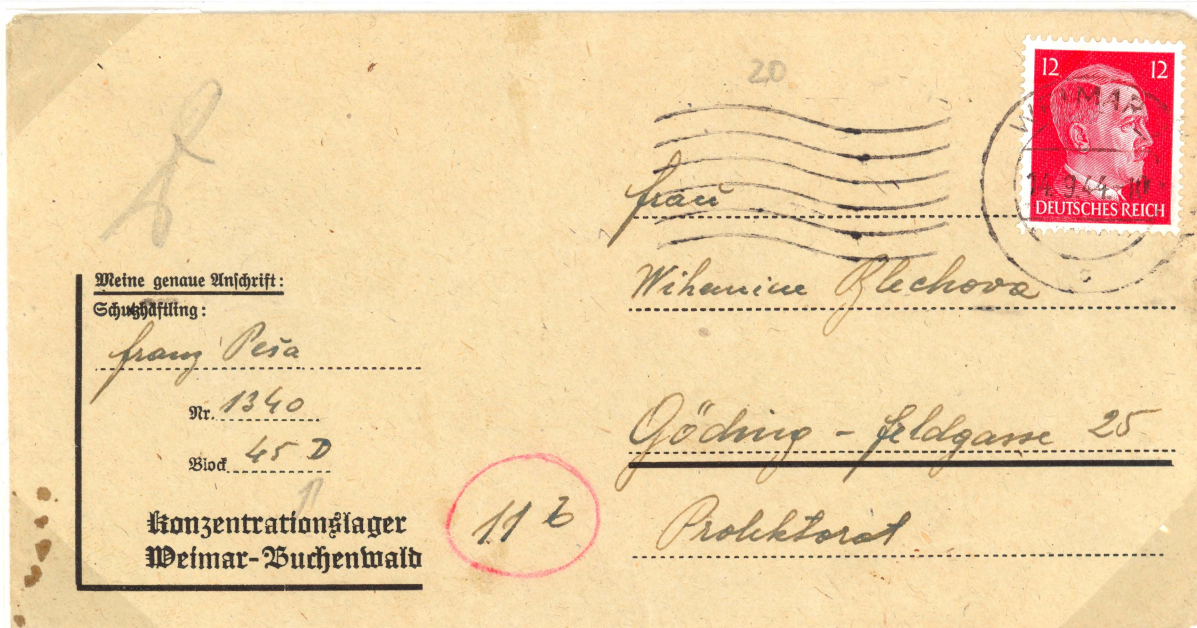 20
12 12
WEIMAR
14.9.44
DEUTSCHES REICH
Frau
Blechova
Göding - Feldgasse 25
Protektorat
Meine genaue Anschrift:
Schutzhäftling:
Franz Peša
Nr. 1340
Block 45 D
Konzentrationslager
Weimar-Buchenwald
11 b